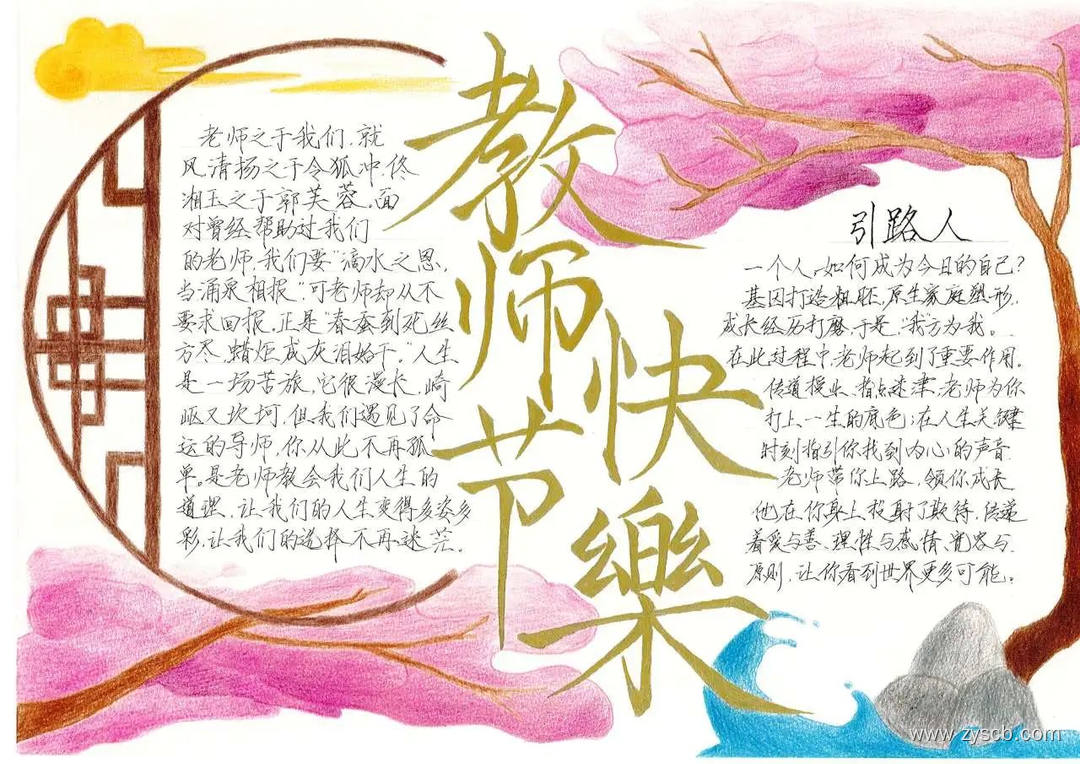 教师节快樂
老师之于我们,就
风清扬之于令狐冲,佟
湘玉之于郭芙蓉,面
对曾经帮助过我们
的老师,我们要“滴水之恩,
当涌泉相报”,可老师却从不
要求回报,正是“春蚕到死丝
方尽,蜡炬成灰泪始干。”人生
是一场苦旅,它很漫长,崎
岖又坎坷,但我们遇见了命
运的导师,你从此不再孤
单。是老师教会我们人生的
道理,让我们的人生变得多姿多
彩,让我们的选择不再迷茫。
引路人
一个人,如何成为今日的自己?
基因打造粗胚,原生家庭塑形,
成长经历打磨,于是“我”方为我。
在此过程中,老师起到了重要作用。
传道授业、指点迷津,老师为你
打上一生的底色;在人生关键
时刻指引你找到内心的声音
老师带你上路,领你成长
他在你身上投射了期待,传递
着爱与善、理性与感情、宽容与
原则,让你看到世界更多可能。
www.zyscb.com